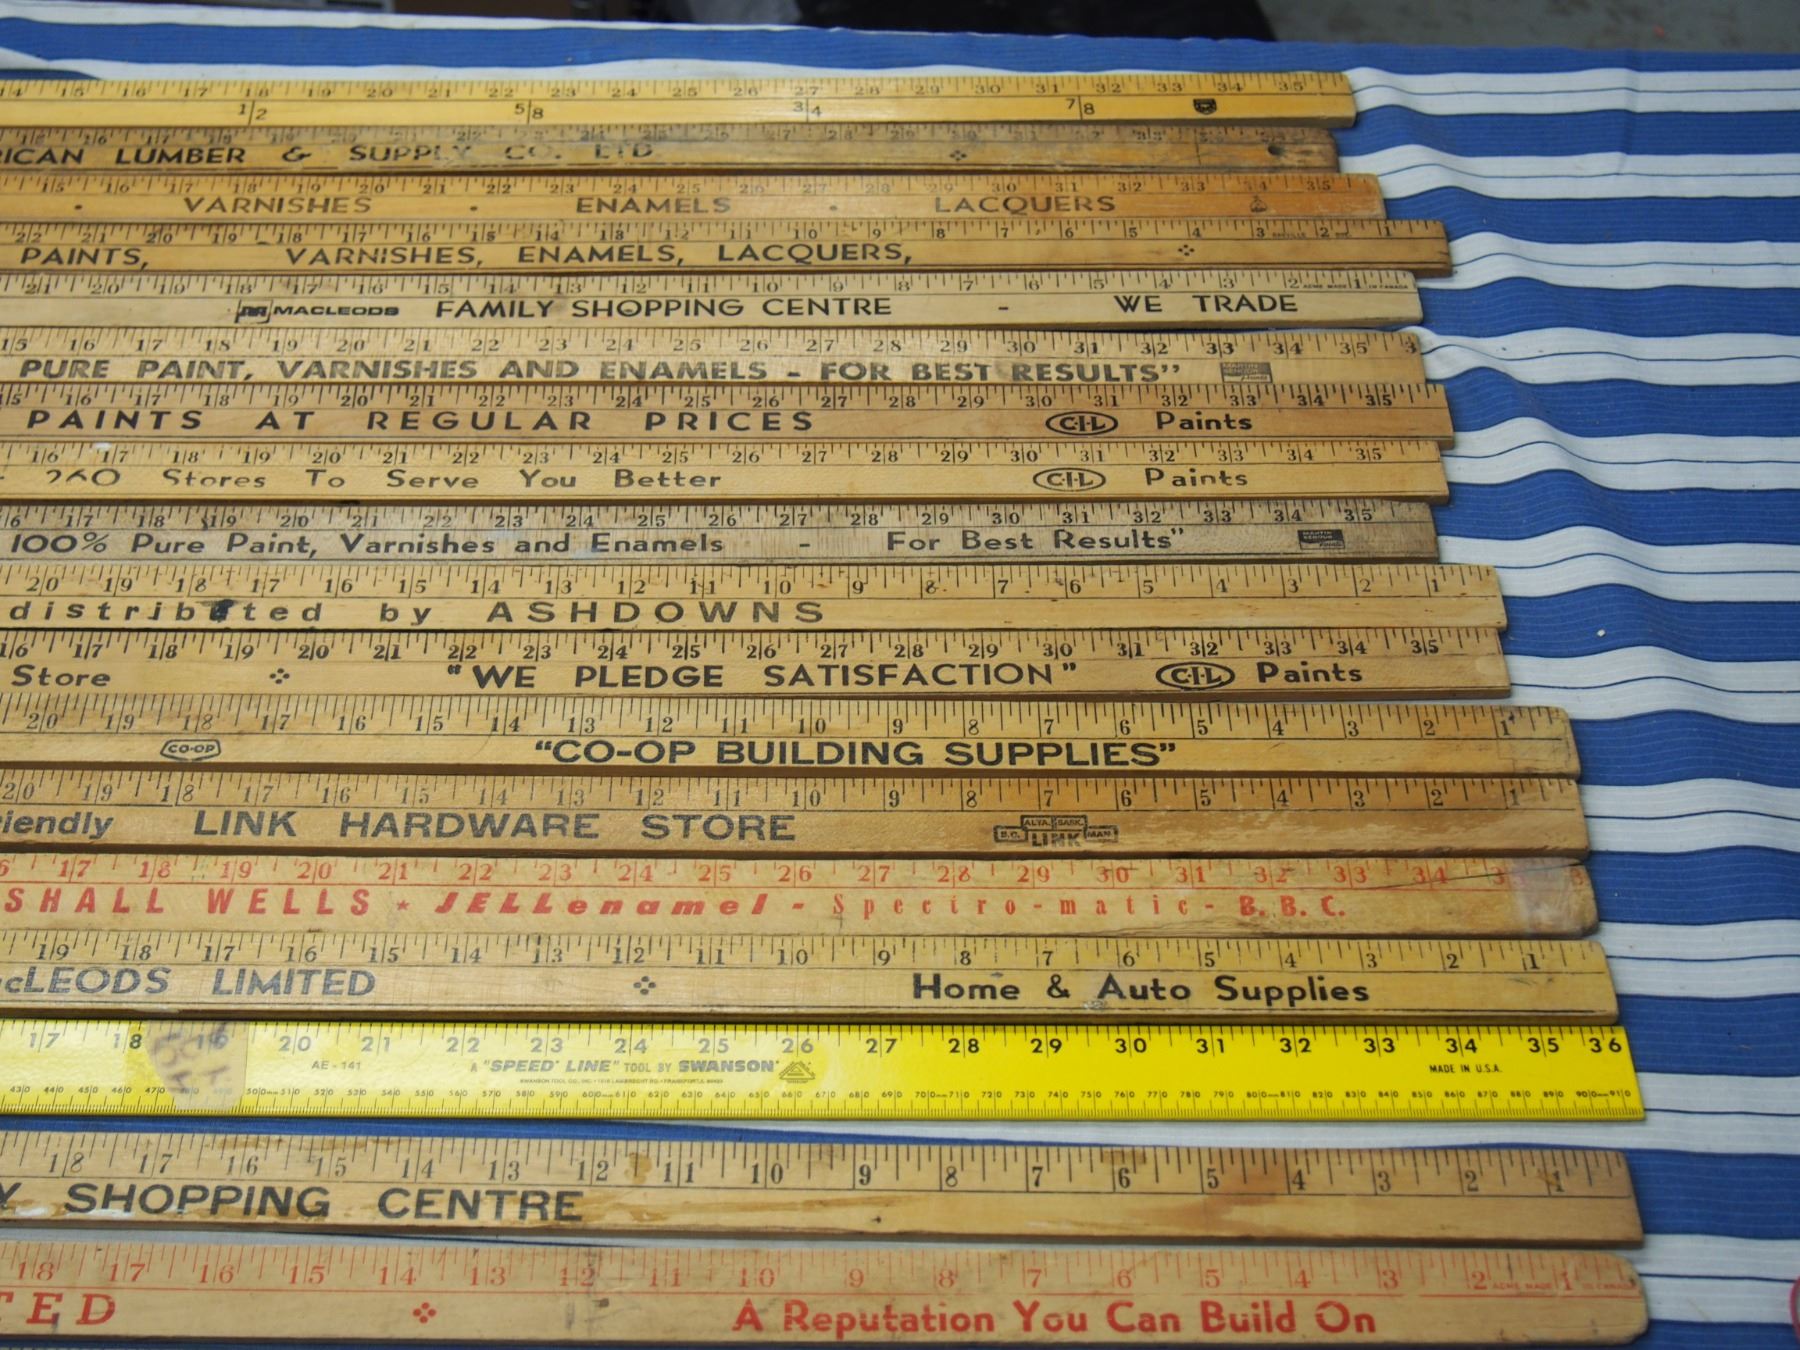 14 15 16 17 18 19 20 21 22 23 24 25 26 27 28 29 30 31 32 33 34 35
1/2 5/8 3/4 7/8
RICAN LUMBER & SUPPLY CO. LTD.
15 16 17 18 19 20 21 22 23 24 25 26 27 28 29 30 31 32 33 34 35
· VARNISHES · ENAMELS · LACQUERS
22 21 20 19 18 17 16 15 14 13 12 11 10 9 8 7 6 5 4 3 2 1
PAINTS, VARNISHES, ENAMELS, LACQUERS,
21 20 19 18 17 16 15 14 13 12 11 10 9 8 7 6 5 4 3 2 ACME MADE 1 IN CANADA
MACLEODS FAMILY SHOPPING CENTRE - WE TRADE
15 16 17 18 19 20 21 22 23 24 25 26 27 28 29 30 31 32 33 34 35 3
PURE PAINT, VARNISHES AND ENAMELS - FOR BEST RESULTS”
15 16 17 18 19 20 21 22 23 24 25 26 27 28 29 30 31 32 33 34 35
PAINTS AT REGULAR PRICES C-I-L Paints
16 17 18 19 20 21 22 23 24 25 26 27 28 29 30 31 32 33 34 35
260 Stores To Serve You Better C-I-L Paints
16 17 18 19 20 21 22 23 24 25 26 27 28 29 30 31 32 33 34 35
100% Pure Paint, Varnishes and Enamels - For Best Results” MARTIN SENOUR Paints
20 19 18 17 16 15 14 13 12 11 10 9 8 7 6 5 4 3 2 1
distributed by ASHDOWNS
16 17 18 19 20 21 22 23 24 25 26 27 28 29 30 31 32 33 34 35
Store “WE PLEDGE SATISFACTION” C-I-L Paints
20 19 18 17 16 15 14 13 12 11 10 9 8 7 6 5 4 3 2 1
CO-OP “CO-OP BUILDING SUPPLIES”
20 19 18 17 16 15 14 13 12 11 10 9 8 7 6 5 4 3 2 1
iendly LINK HARDWARE STORE B.C. ALTA. SASK. MAN. LINK
6 17 18 19 20 21 22 23 24 25 26 27 28 29 30 31 32 33 34 3
SHALL WELLS ★ JELLenamel - Spectro-matic - B.B.C.
19 18 17 16 15 14 13 12 11 10 9 8 7 6 5 4 3 2 1
cLEODS LIMITED Home & Auto Supplies
17 18 19 20 21 22 23 24 25 26 27 28 29 30 31 32 33 34 35 36
AE-141 A "SPEED LINE" TOOL BY SWANSON MADE IN U.S.A.
SWANSON TOOL CO., INC. • 1010 LAMBRECHT RD. • FRANKFORT, IL 60423
430 440 450 460 470 480 490 500mm 510 520 530 540 550 560 570 580 590 600mm 610 620 630 640 650 660 670 680 690 700mm 710 720 730 740 750 760 770 780 790 800mm 810 820 830 840 850 860 870 880 890 900mm 910
18 17 16 15 14 13 12 11 10 9 8 7 6 5 4 3 2 1
Y SHOPPING CENTRE
18 17 16 15 14 13 12 11 10 9 8 7 6 5 4 3 2 ACME MADE 1 IN CANADA
TED A Reputation You Can Build On